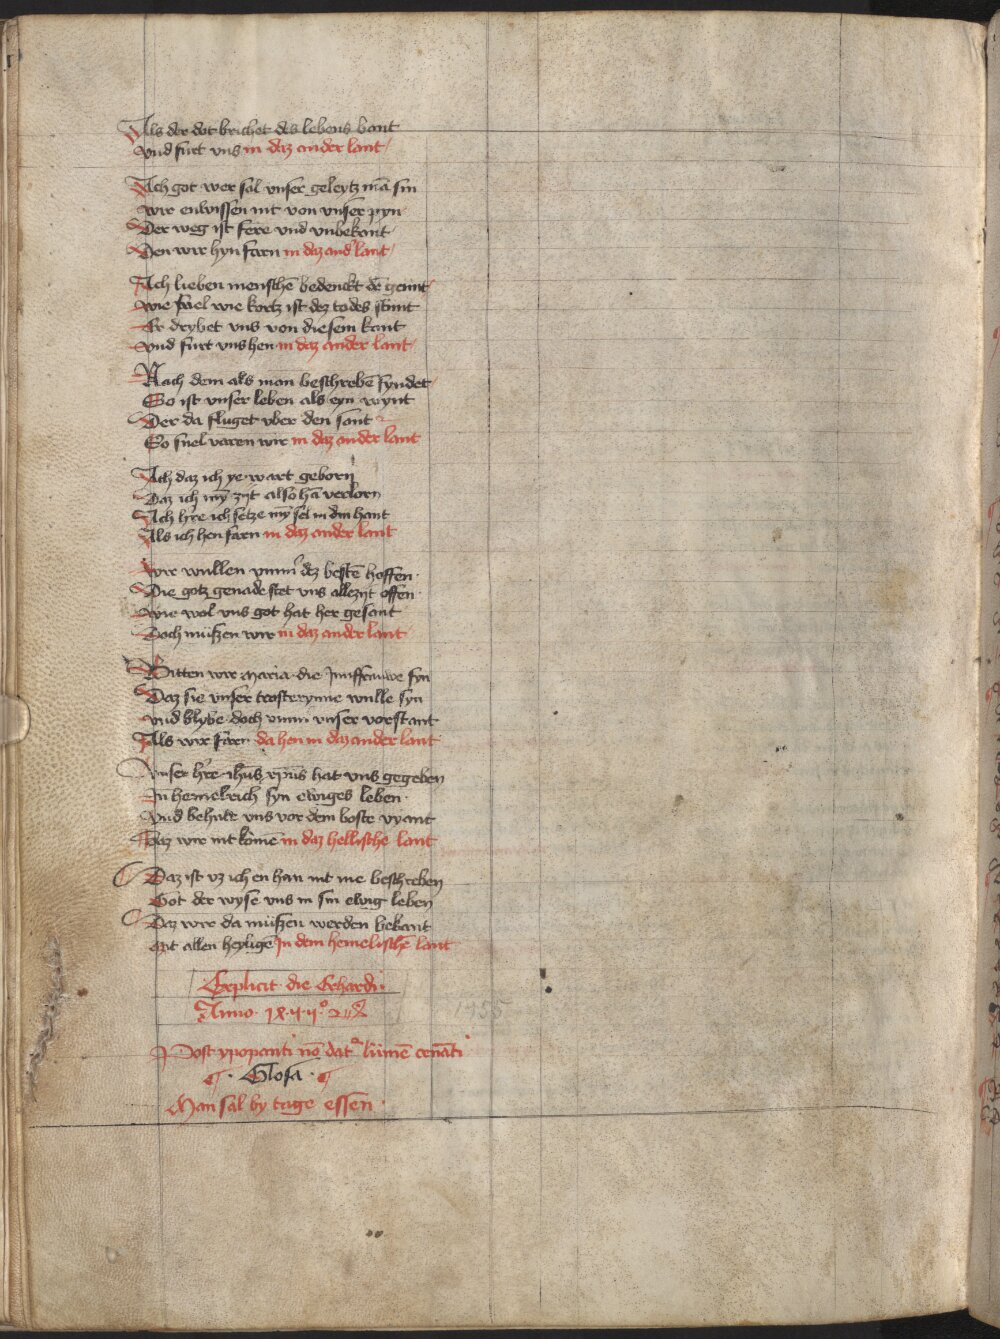 Als der dot brichet des lebens bant
vnd furt vns in daz ander lant
Ach got wer sal vnser geleytz mā sin
wir enwissen nit von vnser pyn
Der weg ist fere vnd vnbekant
Den wir hyn farn in daz and lant
Ach lieben mensche bedenckt de grūt
wie snel wie kortz ist dez todes stūnt
Er drybet vns von diesem kant
vnd furt vns hen in daz ander lant
Nach dem als man beschrebē fyndet
So ist vnser leben als eyn wynt
Der da fluget vber den sant
So snel varen wir in daz ander lant
Ach daz ich ye wart geborn
Daz ich mȳ zijt also hā verlorn
Ach hre ich setze mȳ sel in din hant
Als ich hen farn in daz ander lant
wir wullen ūmer dez bestē hoffen
Die gotz genade stet vns allezijt offen
wie wol vns got hat her gesant
Doch mußen wir in daz ander lant
Bitten wir maria die Junffrauwe fyn
Daz sie vnser trosterynne wulle syn
vnd blybe doch vnser vorstant
Als wir farn da hen in daz ander lant
Vnser hre ihūs xpūs hat vns gegeben
In hemelrich syn ewiges leben
vnd behute vns vor dem boste vyant
Daz wir nit komē in daz hellische lant
Daz ist vz ich en han nit me beschreben
Got der wyse vns in sin ewig leben
Daz wir da mußen werden bekant
Mit allen heyligē in dem hemelischē lant
Explicit die Gehardi
Anno
1455
Post ypopanti nō dat lumē cenāti
Glosa
Man sal by tage essen